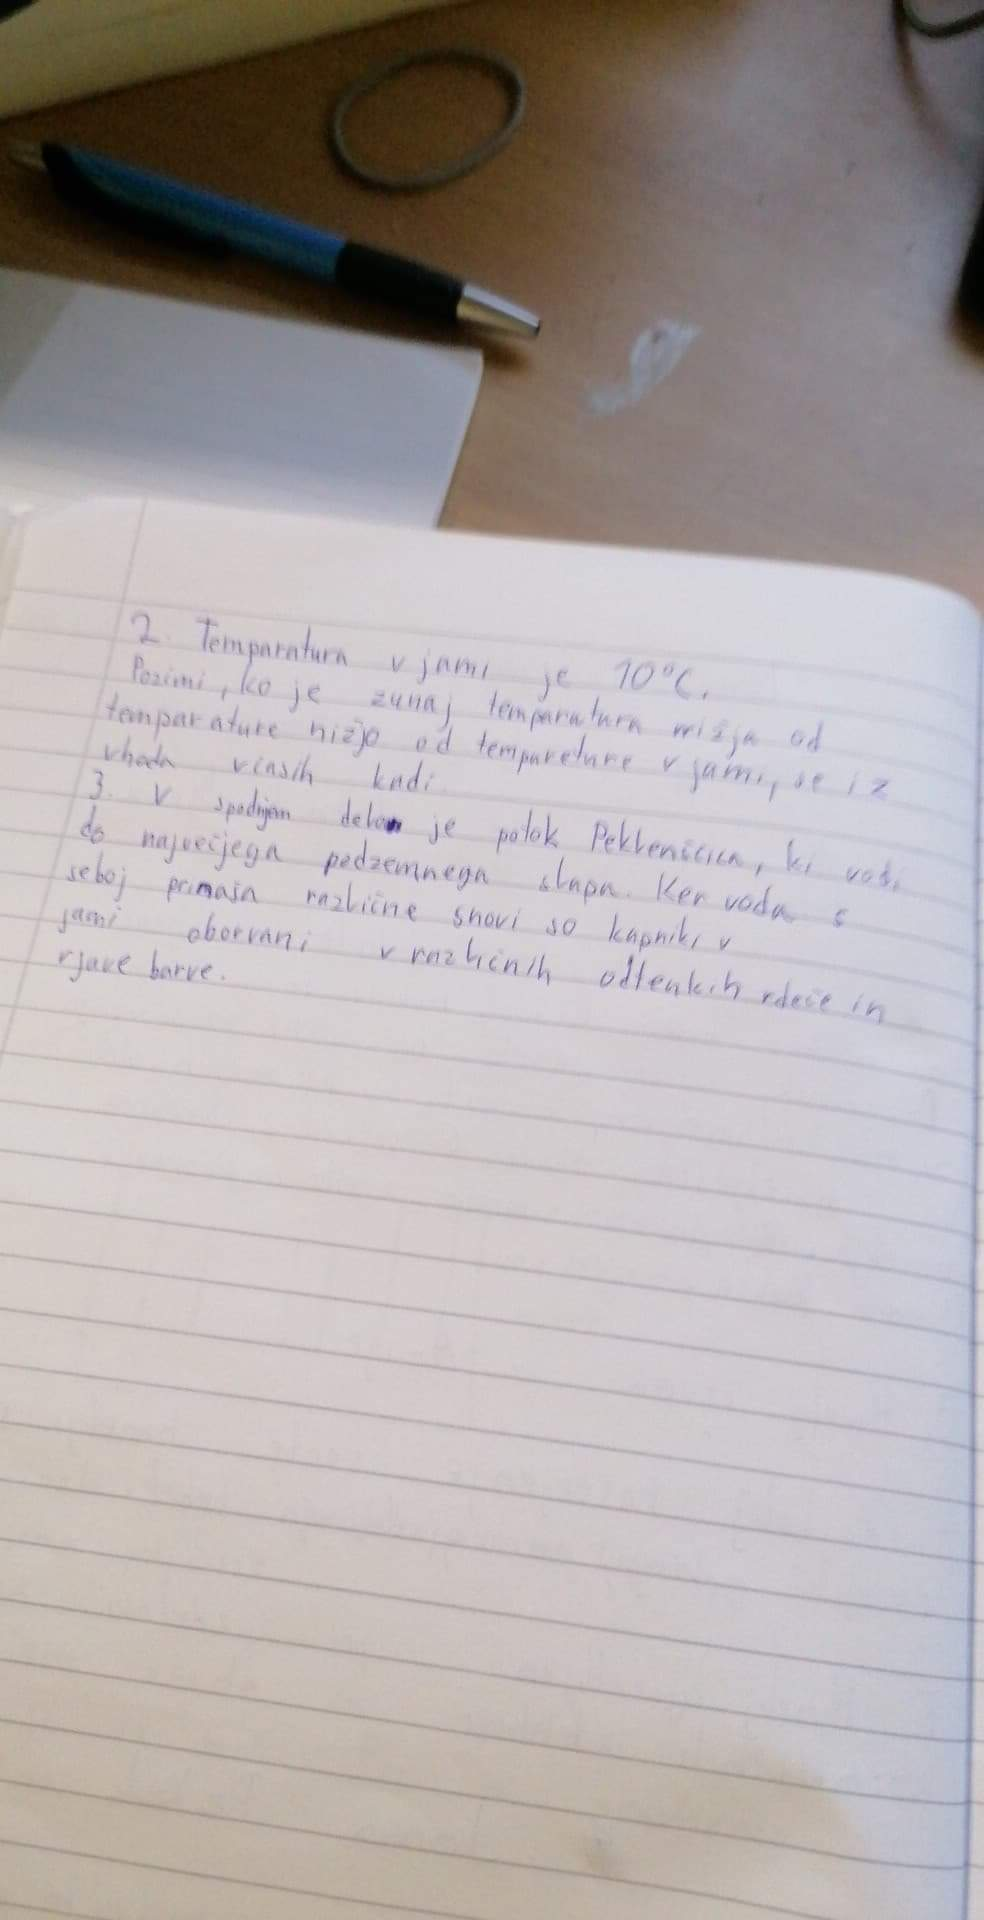 2. Temparatura v jami je 10°C.
Pozimi, ko je zunaj temparatura nižja od
temparature nižjo od tempareture v jami, se iz
vhoda včasih kadi.
3. V spodnjem delom je potok Peklenščica, ki vodi
do največjega podzemnega slapa. Ker voda s
seboj prinaša različne snovi so kapniki v
jami oborvani v različnih odtenkih rdeče in
rjave barve.